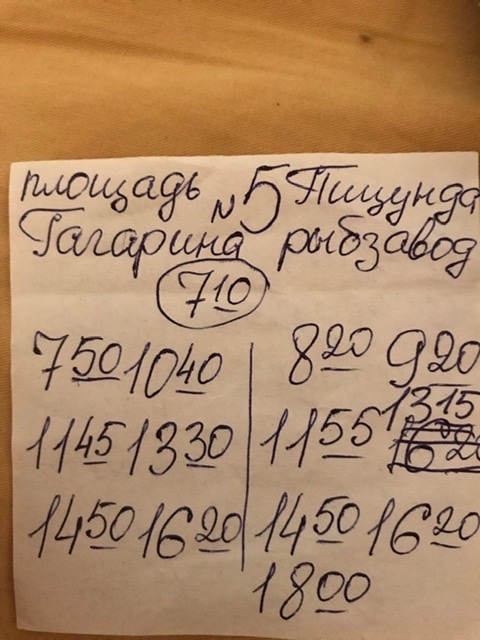 площадь №5 Пицунда
Гагарина рыбзавод
710
750 1040 820 920
1145 1330 1155 1315
1450 1620 1450 1620
1800